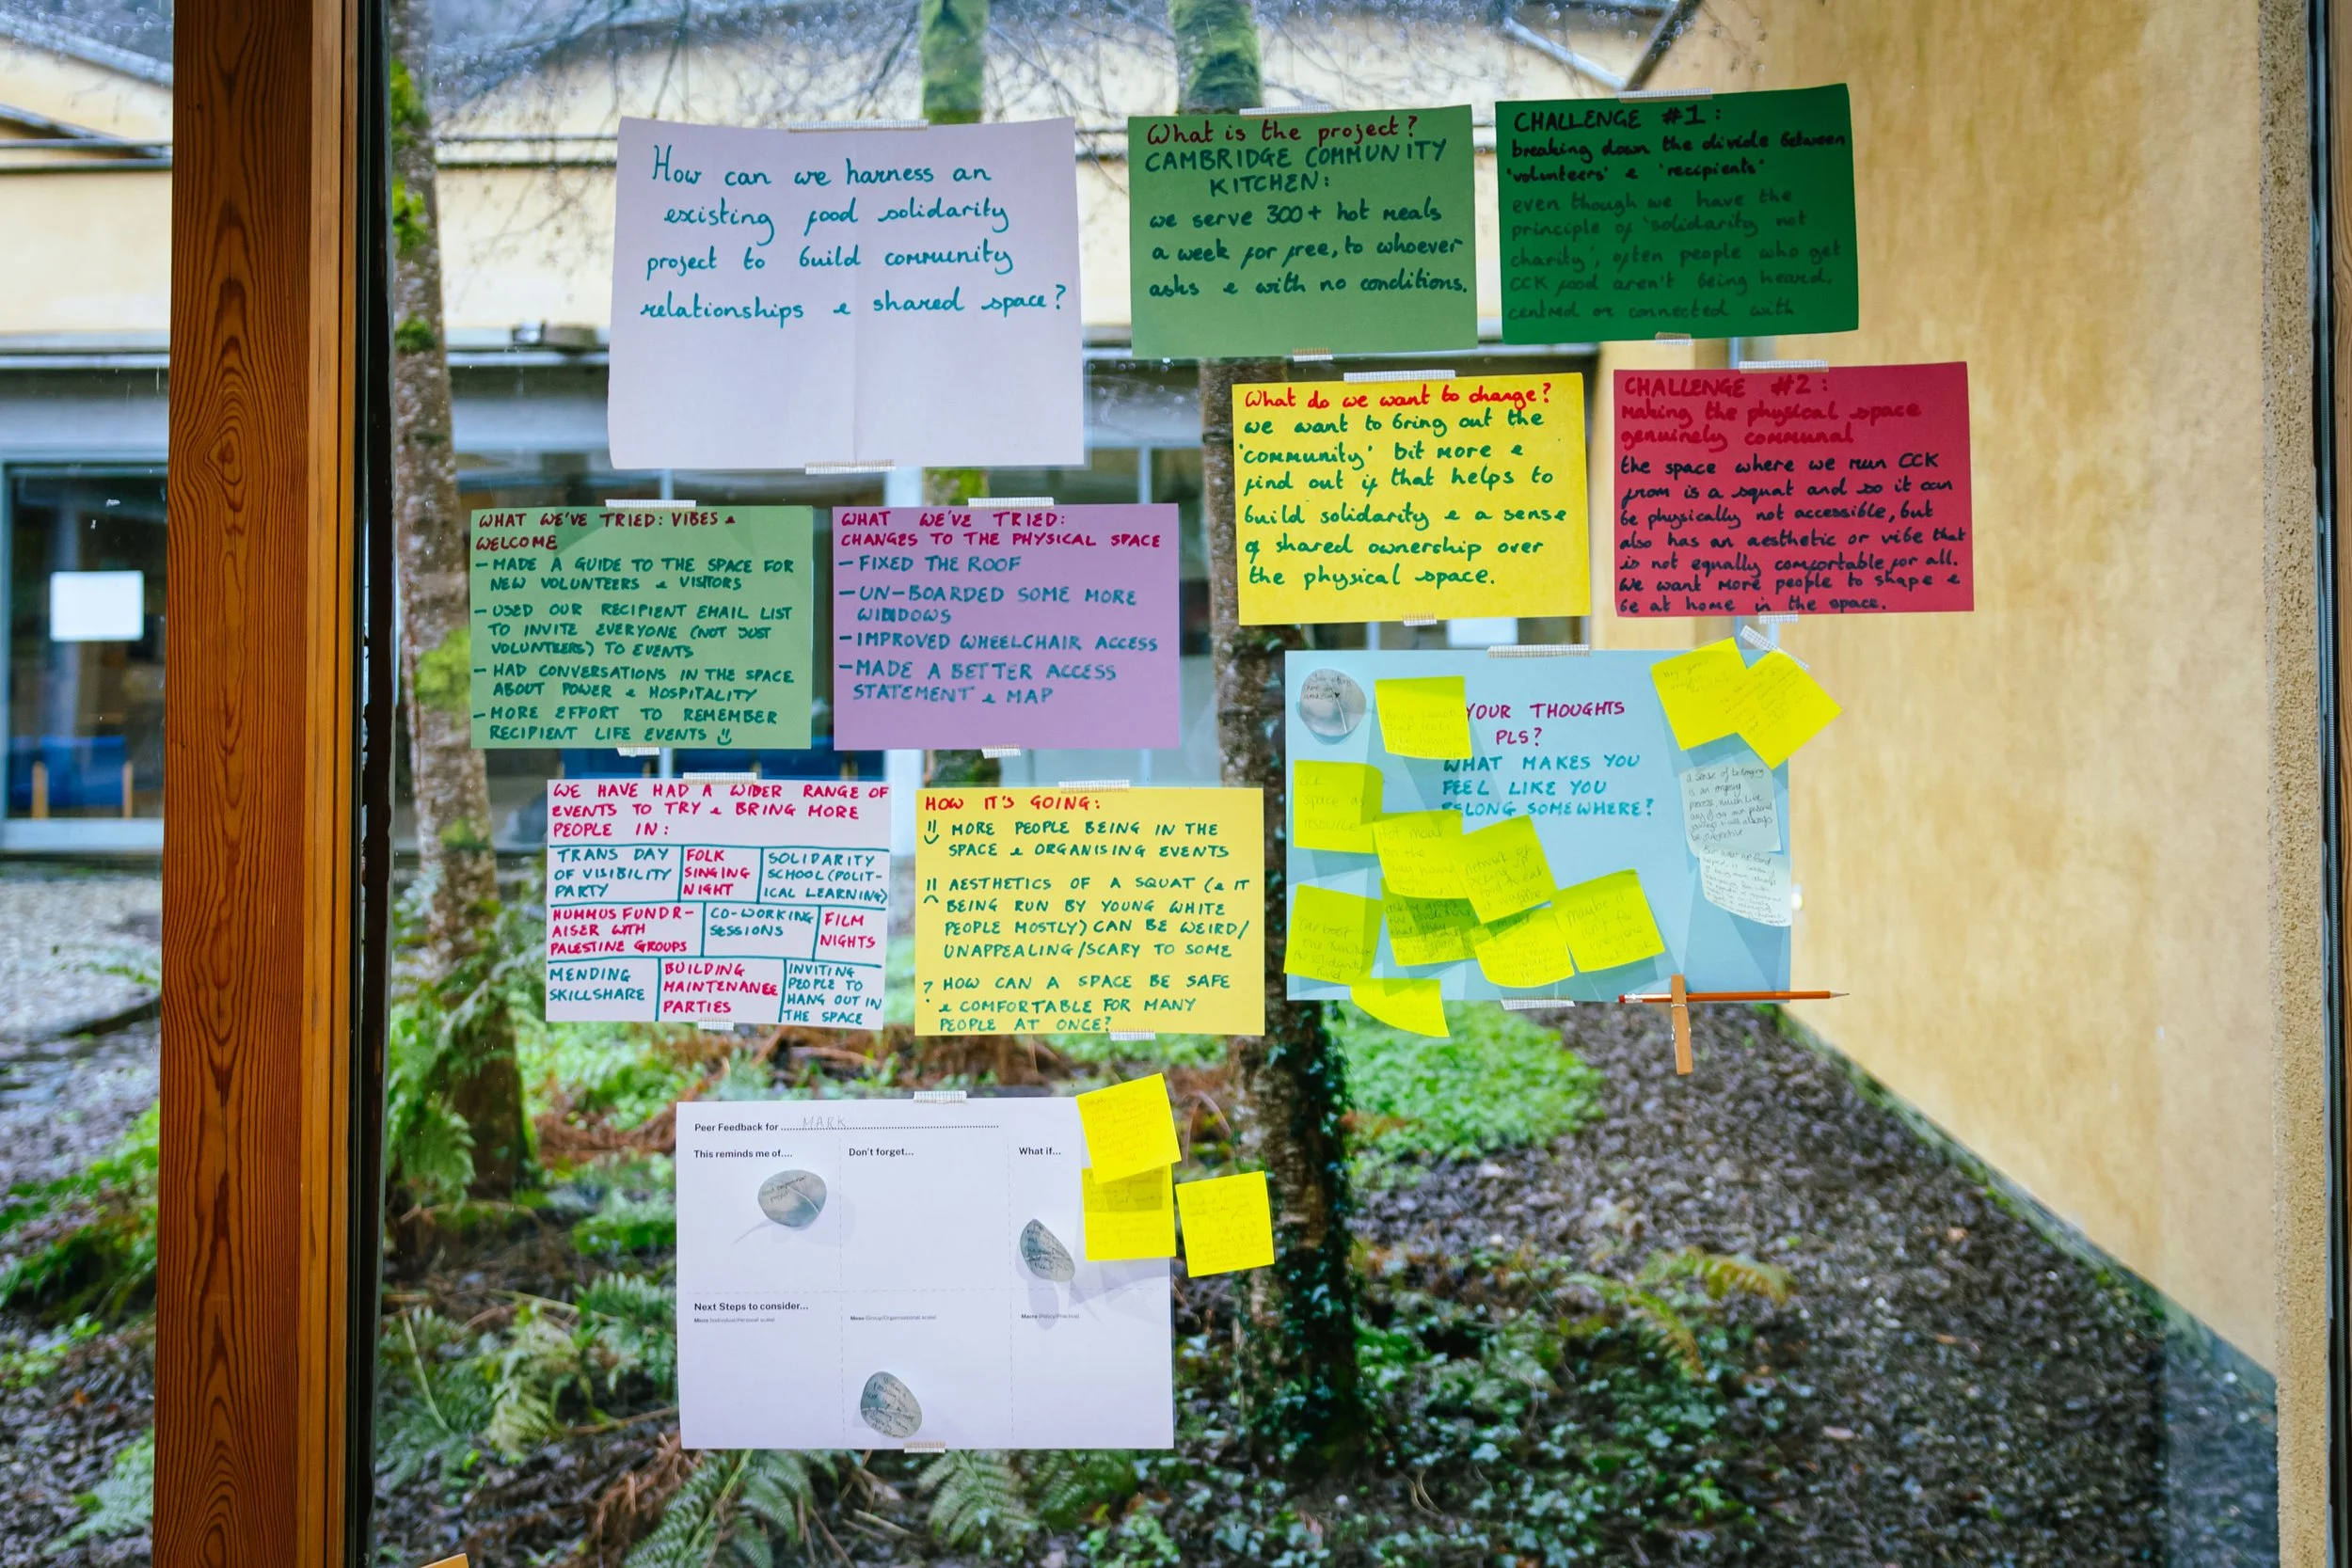 How can we harness an
existing food solidarity
project to build community
relationships & shared space?
What is the project?
CAMBRIDGE COMMUNITY
KITCHEN:
we serve 300+ hot meals
a week for free, to whoever
asks & with no conditions.
CHALLENGE #1:
breaking down the divide between
'volunteers' & 'recipients'
even though we have the
principle of 'solidarity not
charity', often people who get
CCK food aren't being heard,
centred or connected with
What do we want to change?
we want to bring out the
'community' bit more &
find out if that helps to
build solidarity & a sense
of shared ownership over
the physical space.
CHALLENGE #2:
making the physical space
genuinely communal
the space where we run CCK
from is a squat and so it can
be physically not accessible, but
also has an aesthetic or vibe that
is not equally comfortable for all.
We want more people to shape &
be at home in the space.
WHAT WE'VE TRIED: VIBES &
WELCOME
- MADE A GUIDE TO THE SPACE FOR
NEW VOLUNTEERS & VISITORS
- USED OUR RECIPIENT EMAIL LIST
TO INVITE EVERYONE (NOT JUST
VOLUNTEERS) TO EVENTS
- HAD CONVERSATIONS IN THE SPACE
ABOUT POWER & HOSPITALITY
- MORE EFFORT TO REMEMBER
RECIPIENT LIFE EVENTS
WHAT WE'VE TRIED:
CHANGES TO THE PHYSICAL SPACE
- FIXED THE ROOF
- UN-BOARDED SOME MORE
WINDOWS
- IMPROVED WHEELCHAIR ACCESS
- MADE A BETTER ACCESS
STATEMENT & MAP
WE HAVE HAD A WIDER RANGE OF
EVENTS TO TRY & BRING MORE
PEOPLE IN:
TRANS DAY
OF VISIBILITY
PARTY
FOLK
SINGING
NIGHT
SOLIDARITY
SCHOOL (POLIT-
ICAL LEARNING)
HUMMUS FUNDR-
AISER WITH
PALESTINE GROUPS
CO-WORKING
SESSIONS
FILM
NIGHTS
MENDING
SKILLSHARE
BUILDING
MAINTENANCE
PARTIES
INVITING
PEOPLE TO
HANG OUT IN
THE SPACE
HOW IT'S GOING:
MORE PEOPLE BEING IN THE
SPACE & ORGANISING EVENTS
AESTHETICS OF A SQUAT (& IT
BEING RUN BY YOUNG WHITE
PEOPLE MOSTLY) CAN BE WEIRD/
UNAPPEALING/SCARY TO SOME
? HOW CAN A SPACE BE SAFE
& COMFORTABLE FOR MANY
PEOPLE AT ONCE?
YOUR THOUGHTS
PLS?
WHAT MAKES YOU
FEEL LIKE YOU
BELONG SOMEWHERE?
CCK
space as
resource
Hot meal
on the
network of
maybe it
isn't for
everyone
a sense of belonging
is an ongoing
process
Peer Feedback for MARK
This reminds me of....
Don't forget...
What if...
Next Steps to consider...
Micro (Individual/Personal scale)
Meso (Group/Organisational scale)
Macro (Policy/Practice)